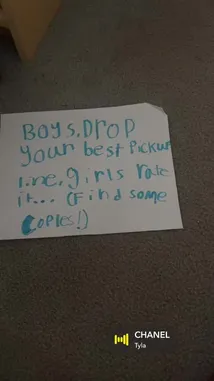 Boys, Drop
your best Pickup
line, girls rate
it... (Find some
Copies!)
CHANEL
Tyla